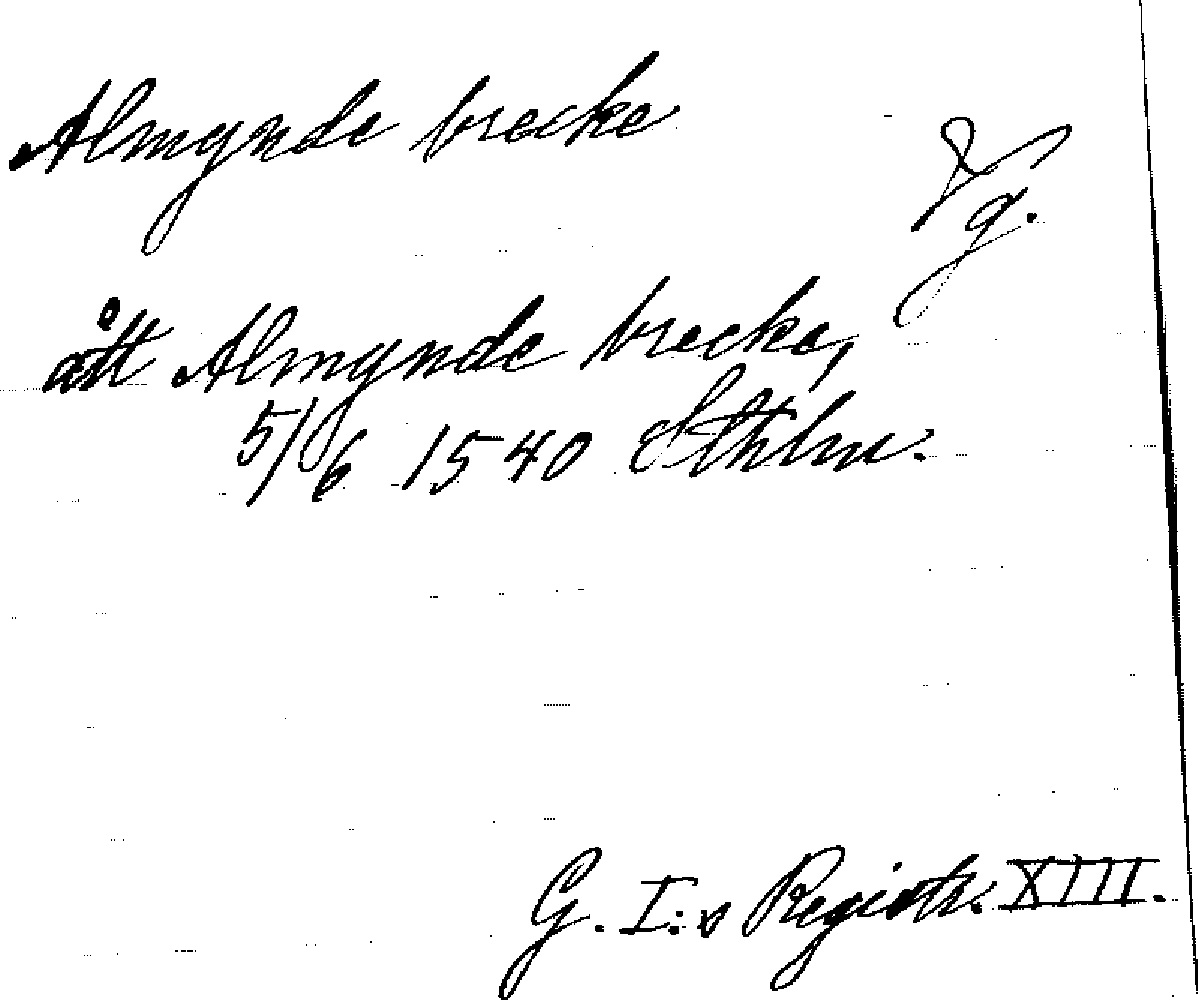 Almynde brecke
Vg.
ått Almynde brecke,
5/6 1540 Sthlm.
G. I:s Registr. XIII.